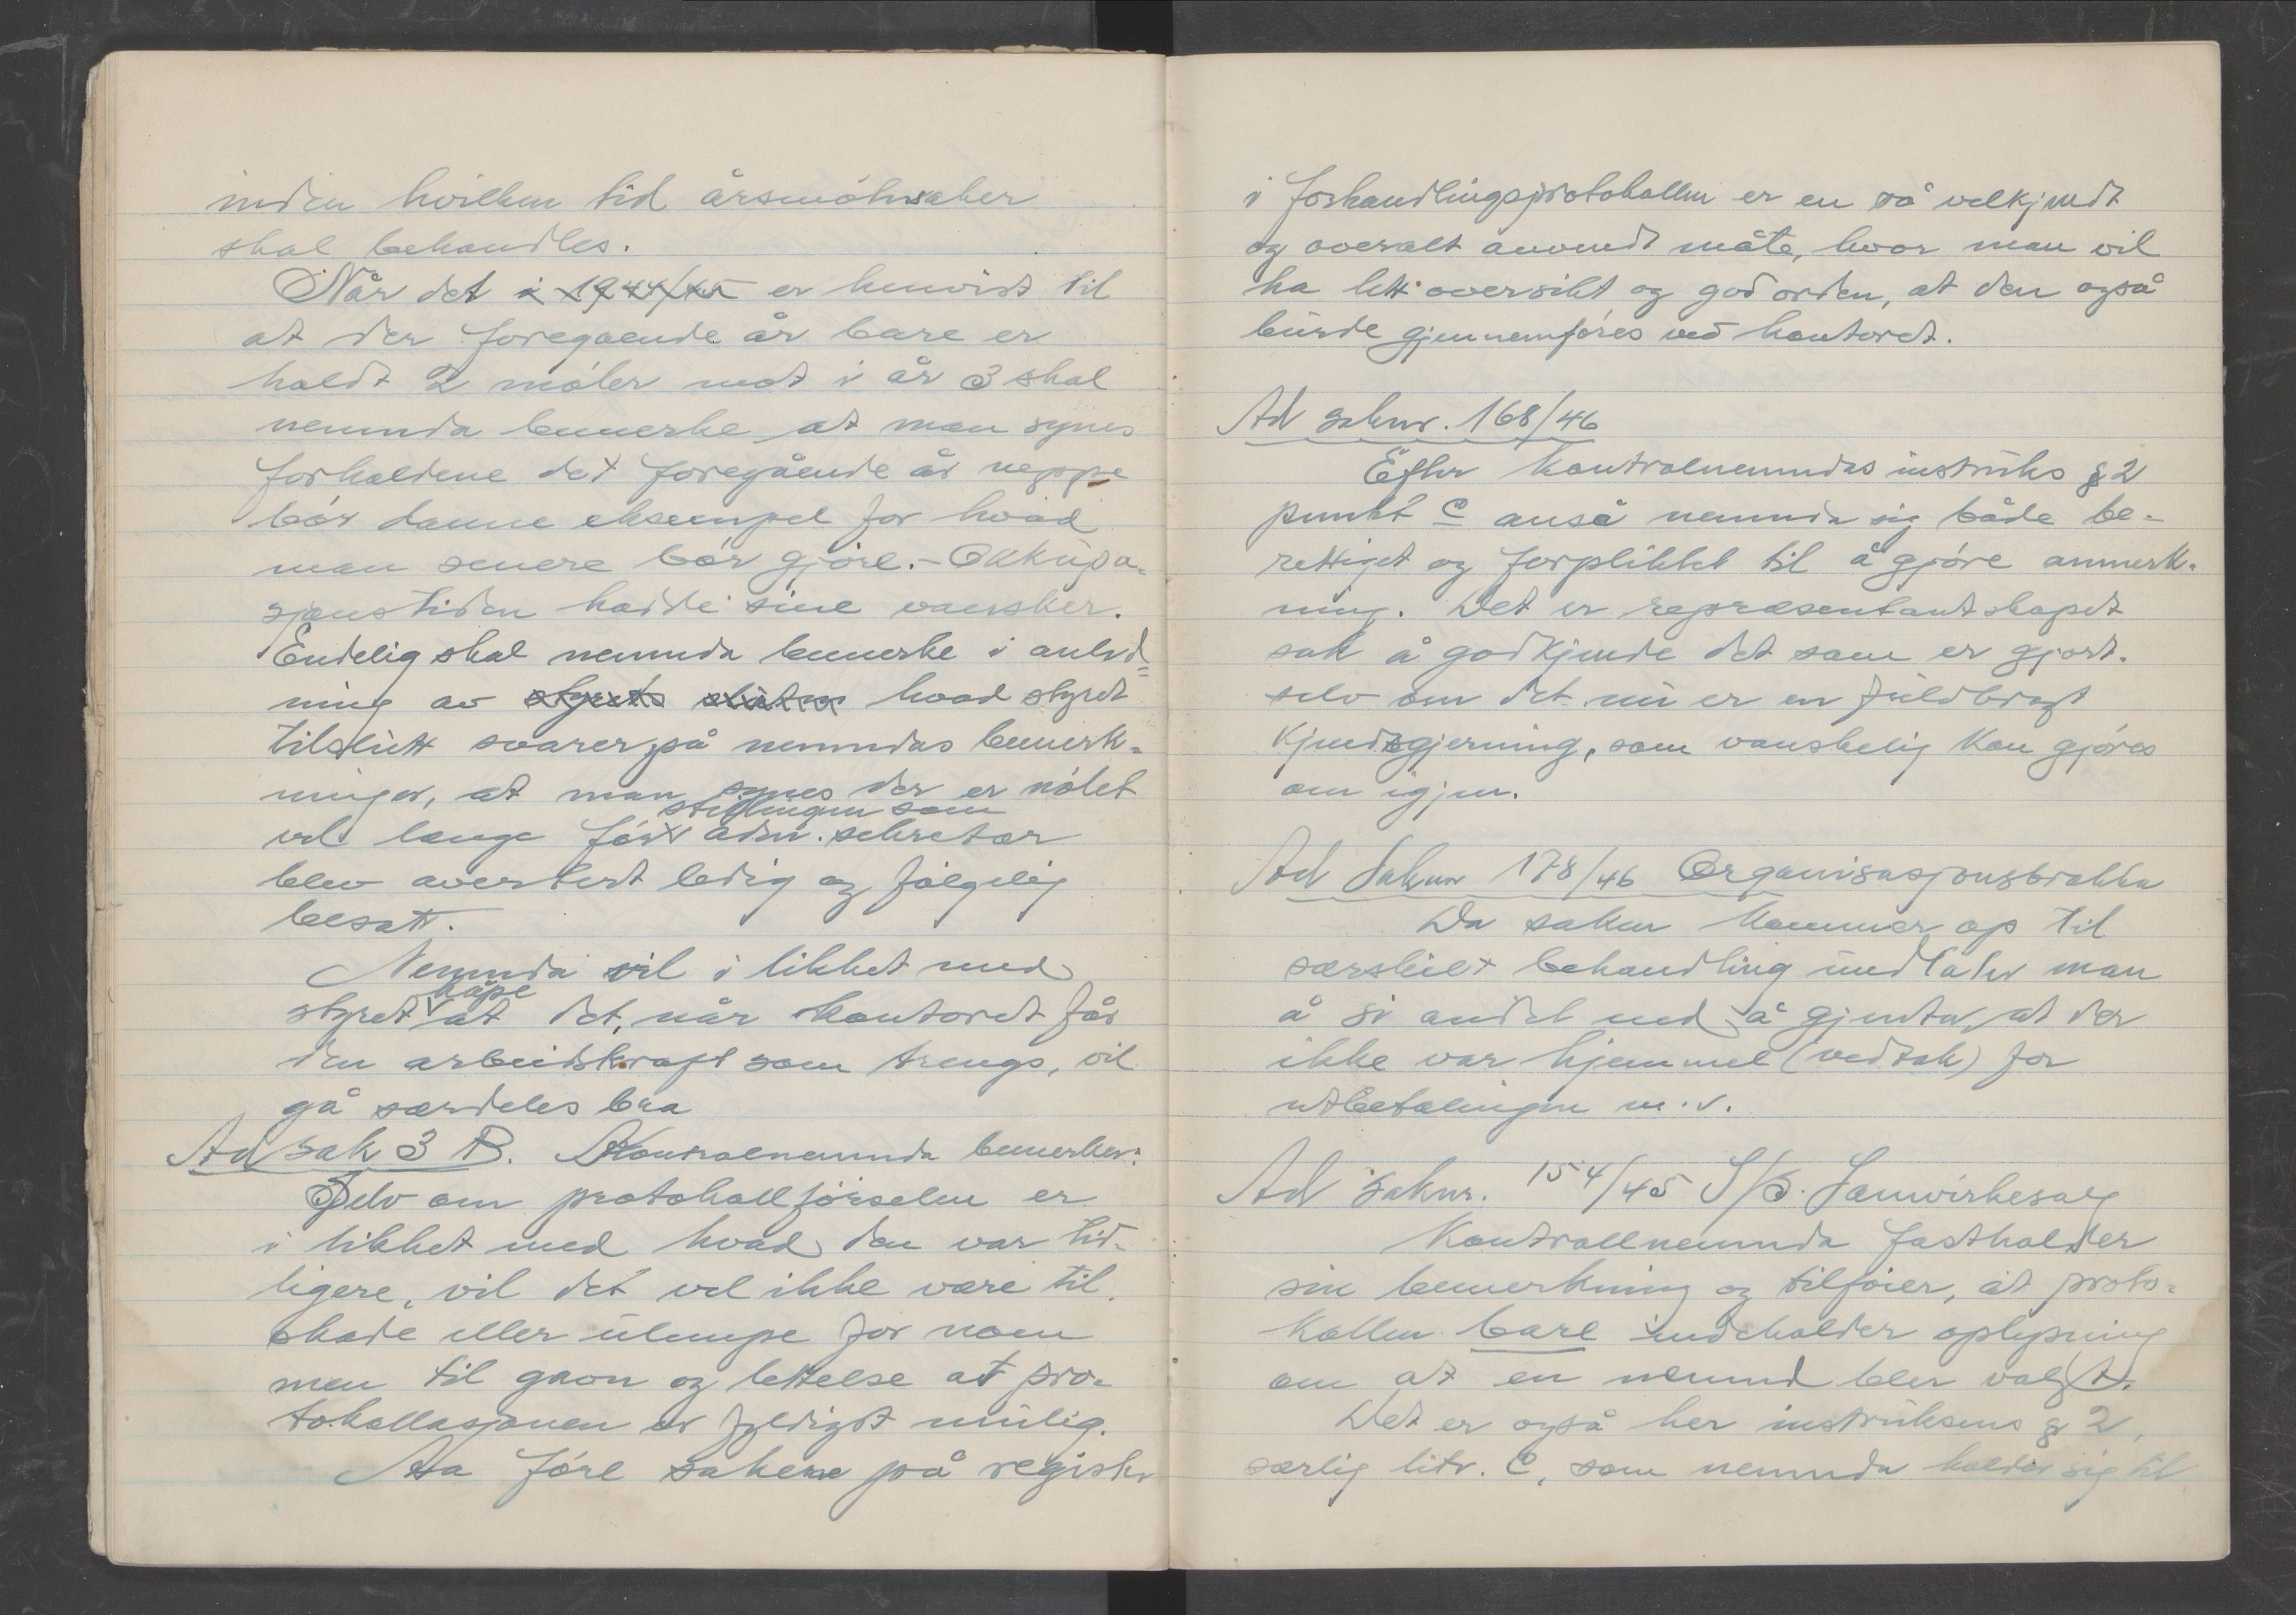 inden hvilken tid årsmötesaker
skal behandles.
Når det i 1944/45 er henvist til
at der foregaende år bare er
holdt 2 möter mot i år 3 skal
nemnda bemerke at man synes
forholdene det foregående år neppe
bör danne eksempel for hvad
man senere bör gjöre. - Okkupa-
sjonstiden hadde sine vansker.
Endelig skal nemnda bemerke i anled=
ning av styrets slutn hvad styret
tilslutt svarer på nemndas bemerk-
ninger, at man synes der er nölet
stillingen som
vel længe för adm. sekretær
blev avertert ledig og fölgelig
besatt.
Nemnda vil i likhet med
håpe
styret at det, når kontoret får
den arbeidskraft som trengs, vil
gå særdeles bra
Ad sak 3 B. Kontrolnemnda bemerker:
Selv om protokollförselen er
i likhet med hvad den var tid-
ligere, vil det vel ikke være til
skade eller ulempe for noen
men til gavn og lettelse at pro-
tokollasjonen er fyldigst mulig.
Aa före sakene på register
i forhandlingsprotokollen er en så velkjendt
og overalt anvendt måte, hvor man vil
ha lett oversikt og god orden, at den også
burde gjennemföres ved kontoret.
Ad saknr. 168/46
Efter kontrolnemndas instruks § 2
punkt C anså nemnda sig både be-
rettiget og forpliktet til å gjöre anmerk-
ning. Det er repræsentantskapet
sak å godkjende det som er gjort.
selv om det nu er en fuldbragt
kjendsgjerning, som vanskelig kan gjöres
om igjen.
Ad Saknr 178/46 Organisasjonsbrakka
Da saken kommer op til
særskilt behandling undlater man
å si andet end å gjenta at der
ikke var hjemmel (vedtak) for
utbetalingen m.v.
Ad saknr. 154/45 S/S. Samvirkesalg
Kontrollnemnda fastholder
sin bemerkning og tilföier, at proto-
kollen bare indeholder oplysning
om at en nemnd blev valgt.
Det er også her instruksens § 2,
særlig litr. C, som nemnda holder sig til